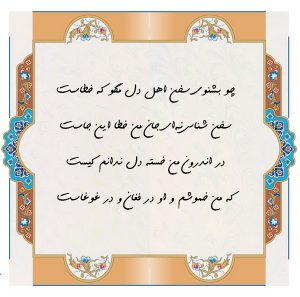 چو بشنوی سخن اهل دل مگو که خطاست
سخن شناس نه‌ای جان من خطا این جاست
در اندرون من خسته دل ندانم کیست
که من خموشم و او در فغان و در غوغاست